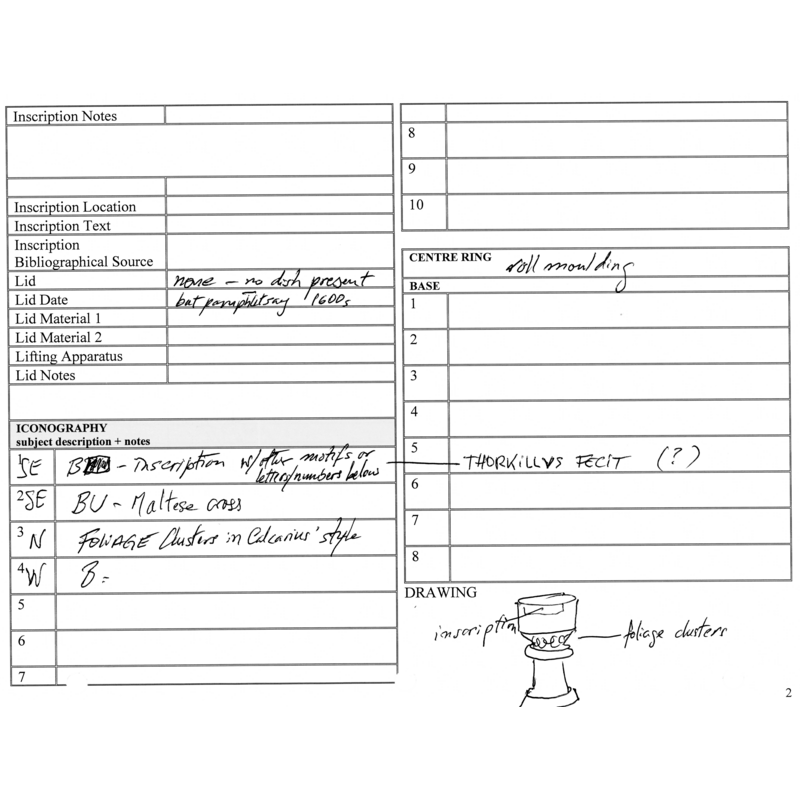 Inscription Notes
Inscription Location
Inscription Text
Inscription
Bibliographical Source
Lid none - no dish present
Lid Date but pamphlet say 1600s
Lid Material 1
Lid Material 2
Lifting Apparatus
Lid Notes
ICONOGRAPHY
subject description + notes
1 SE B - Inscription w/other motifs or
letters/numbers below
2 SE BU - Maltese cross
3 N FOLIAGE Clusters in Calcarius' style
4 W B =
5
6
7
8
9
10
CENTRE RING roll moulding
BASE
1
2
3
4
5 THORKILLVS FECIT (?)
6
7
8
DRAWING
inscription
foliage clusters
2